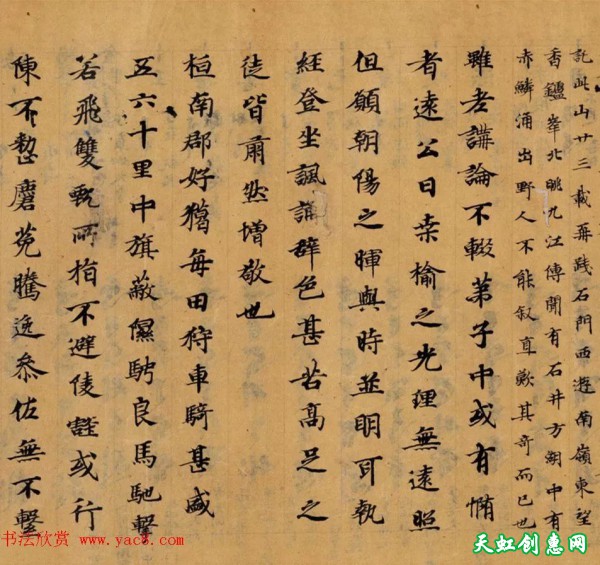 託此山廿三載再踐石門西遊南嶺東望
香鑪峯北眺九江傳聞有石井方湖中有
赤鱗涌出野人不能叙直歎其奇而已也
雖老講論不輟第子中或有惰
者遠公曰桒榆之光理無遠照
但願朝陽之暉與時並明耳執
經登坐諷誦辞色甚苦高足之
徒皆肅然增敬也
桓南郡好獵每田狩車騎甚盛
五六十里中旗蔽隰騁良馬馳擊
若飛雙甄所指不避陵壑或行
陳不整麏菟騰逸叅佐無不繫
书法欣赏 www.yac8.com
天虹创惠网